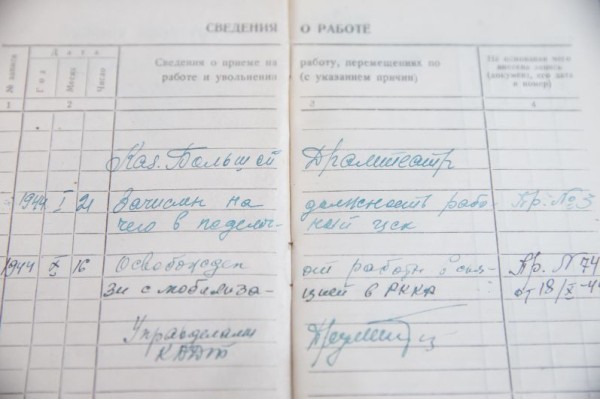 СВЕДЕНИЯ О РАБОТЕ
№ записи
Дата
Год
Месяц
Число
Сведения о приеме на работу, перемещениях по
работе и увольнении (с указанием причин)
На основании чего
внесена запись
(документ, его дата
и номер)
1 2 3 4
Каз. Большой Драмтеатр
1944 I 21 Зачислен на должность рабо- Пр. № 3
чего в поделоч- ный цех
1944 X 16 Освобожден от работы в свя- Пр. № 74
зи с мобилиза- цией в РККА от 18/X-44
Управделами
КБДТ